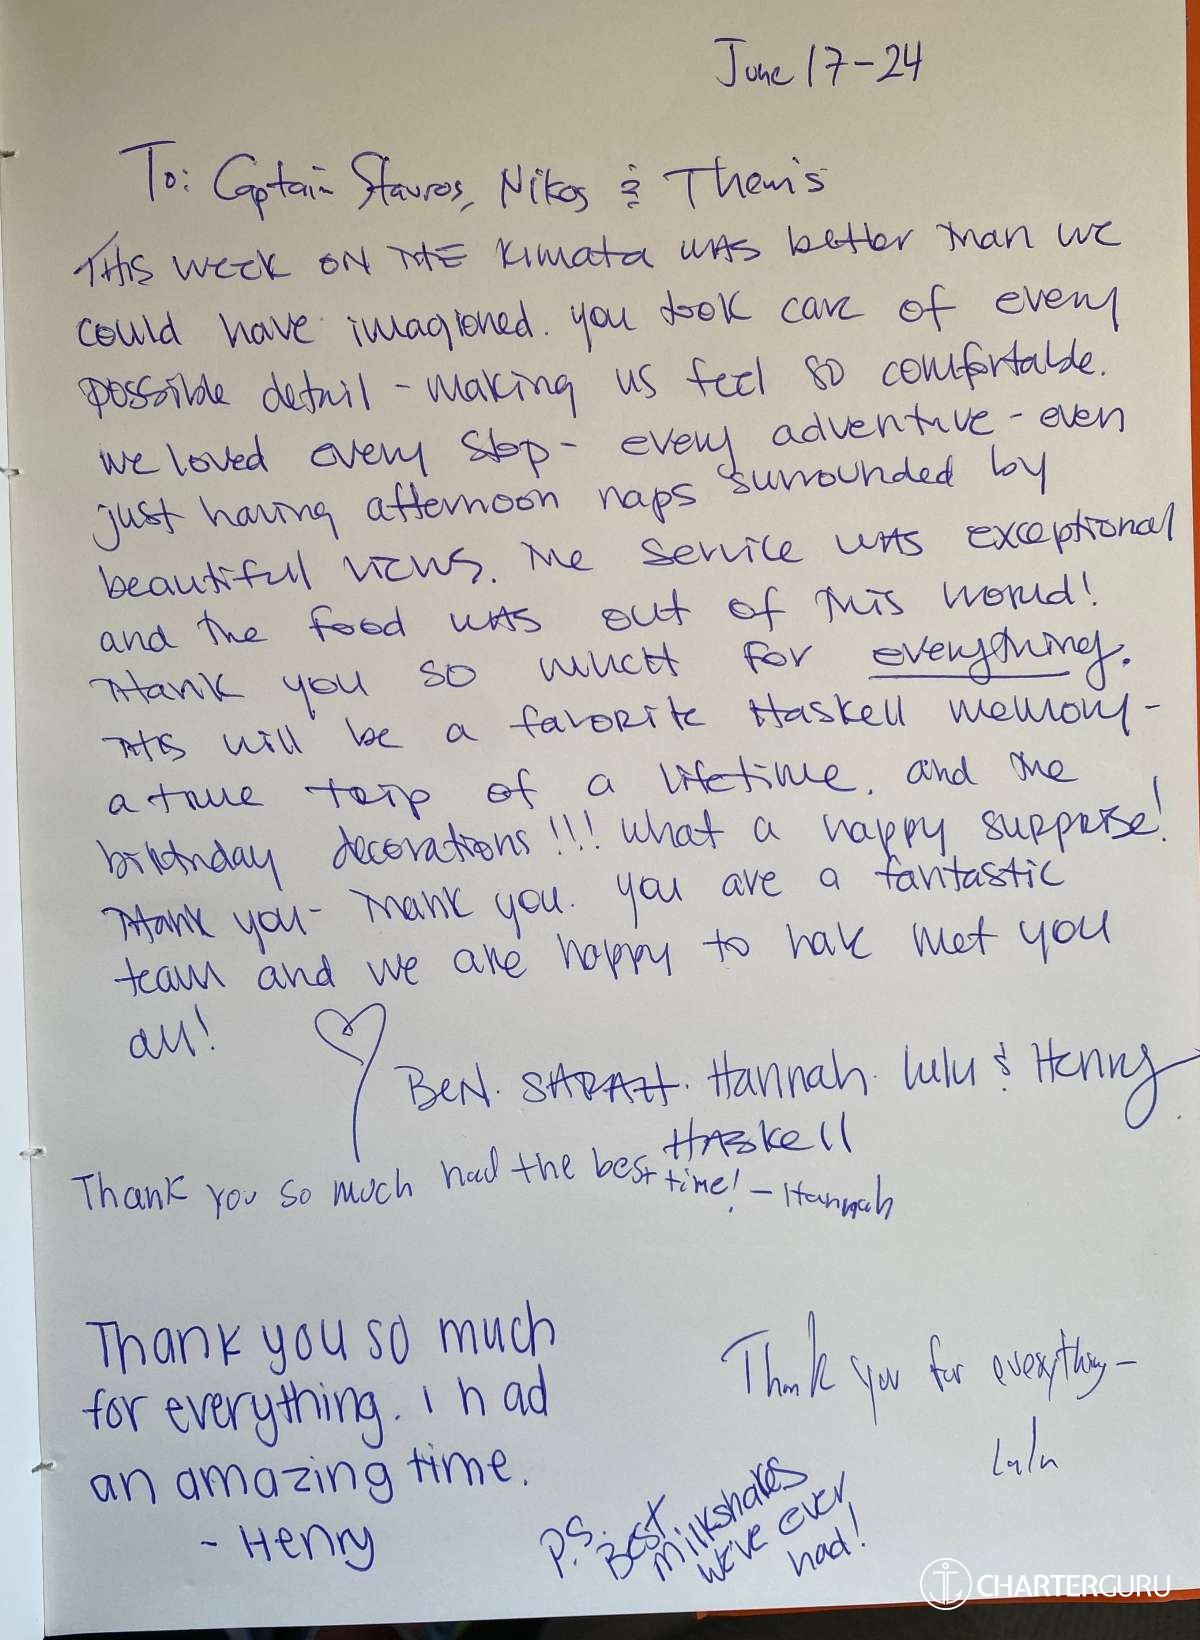 June 17-24
To: Captain Stavros, Nikos & Themis
THIS WEEK ON THE Kimata WAS better than we
could have imagioned. you took care of every
possible detail - making us feel so comfortable.
we loved every stop - every adventure - even
just having afternoon naps surrounded by
beautiful views. The service was exceptional
and the food was out of this world!
Thank you so much for everything.
This will be a favorite Haskell memory -
a true trip of a lifetime. and the
birthday decorations!!! what a happy surprise!
Thank you - Thank you. you are a fantastic
team and we are happy to have met you
all!
BEN. SARAH. Hannah. Lulu & Henry
HASkell
Thank you so much had the best time! - Hannah
Thank you so much
for everything. I had
an amazing time.
- Henry
Thank you for everything -
Lulu
P.S. Best
milkshakes
we've ever
had!
CHARTERGURU